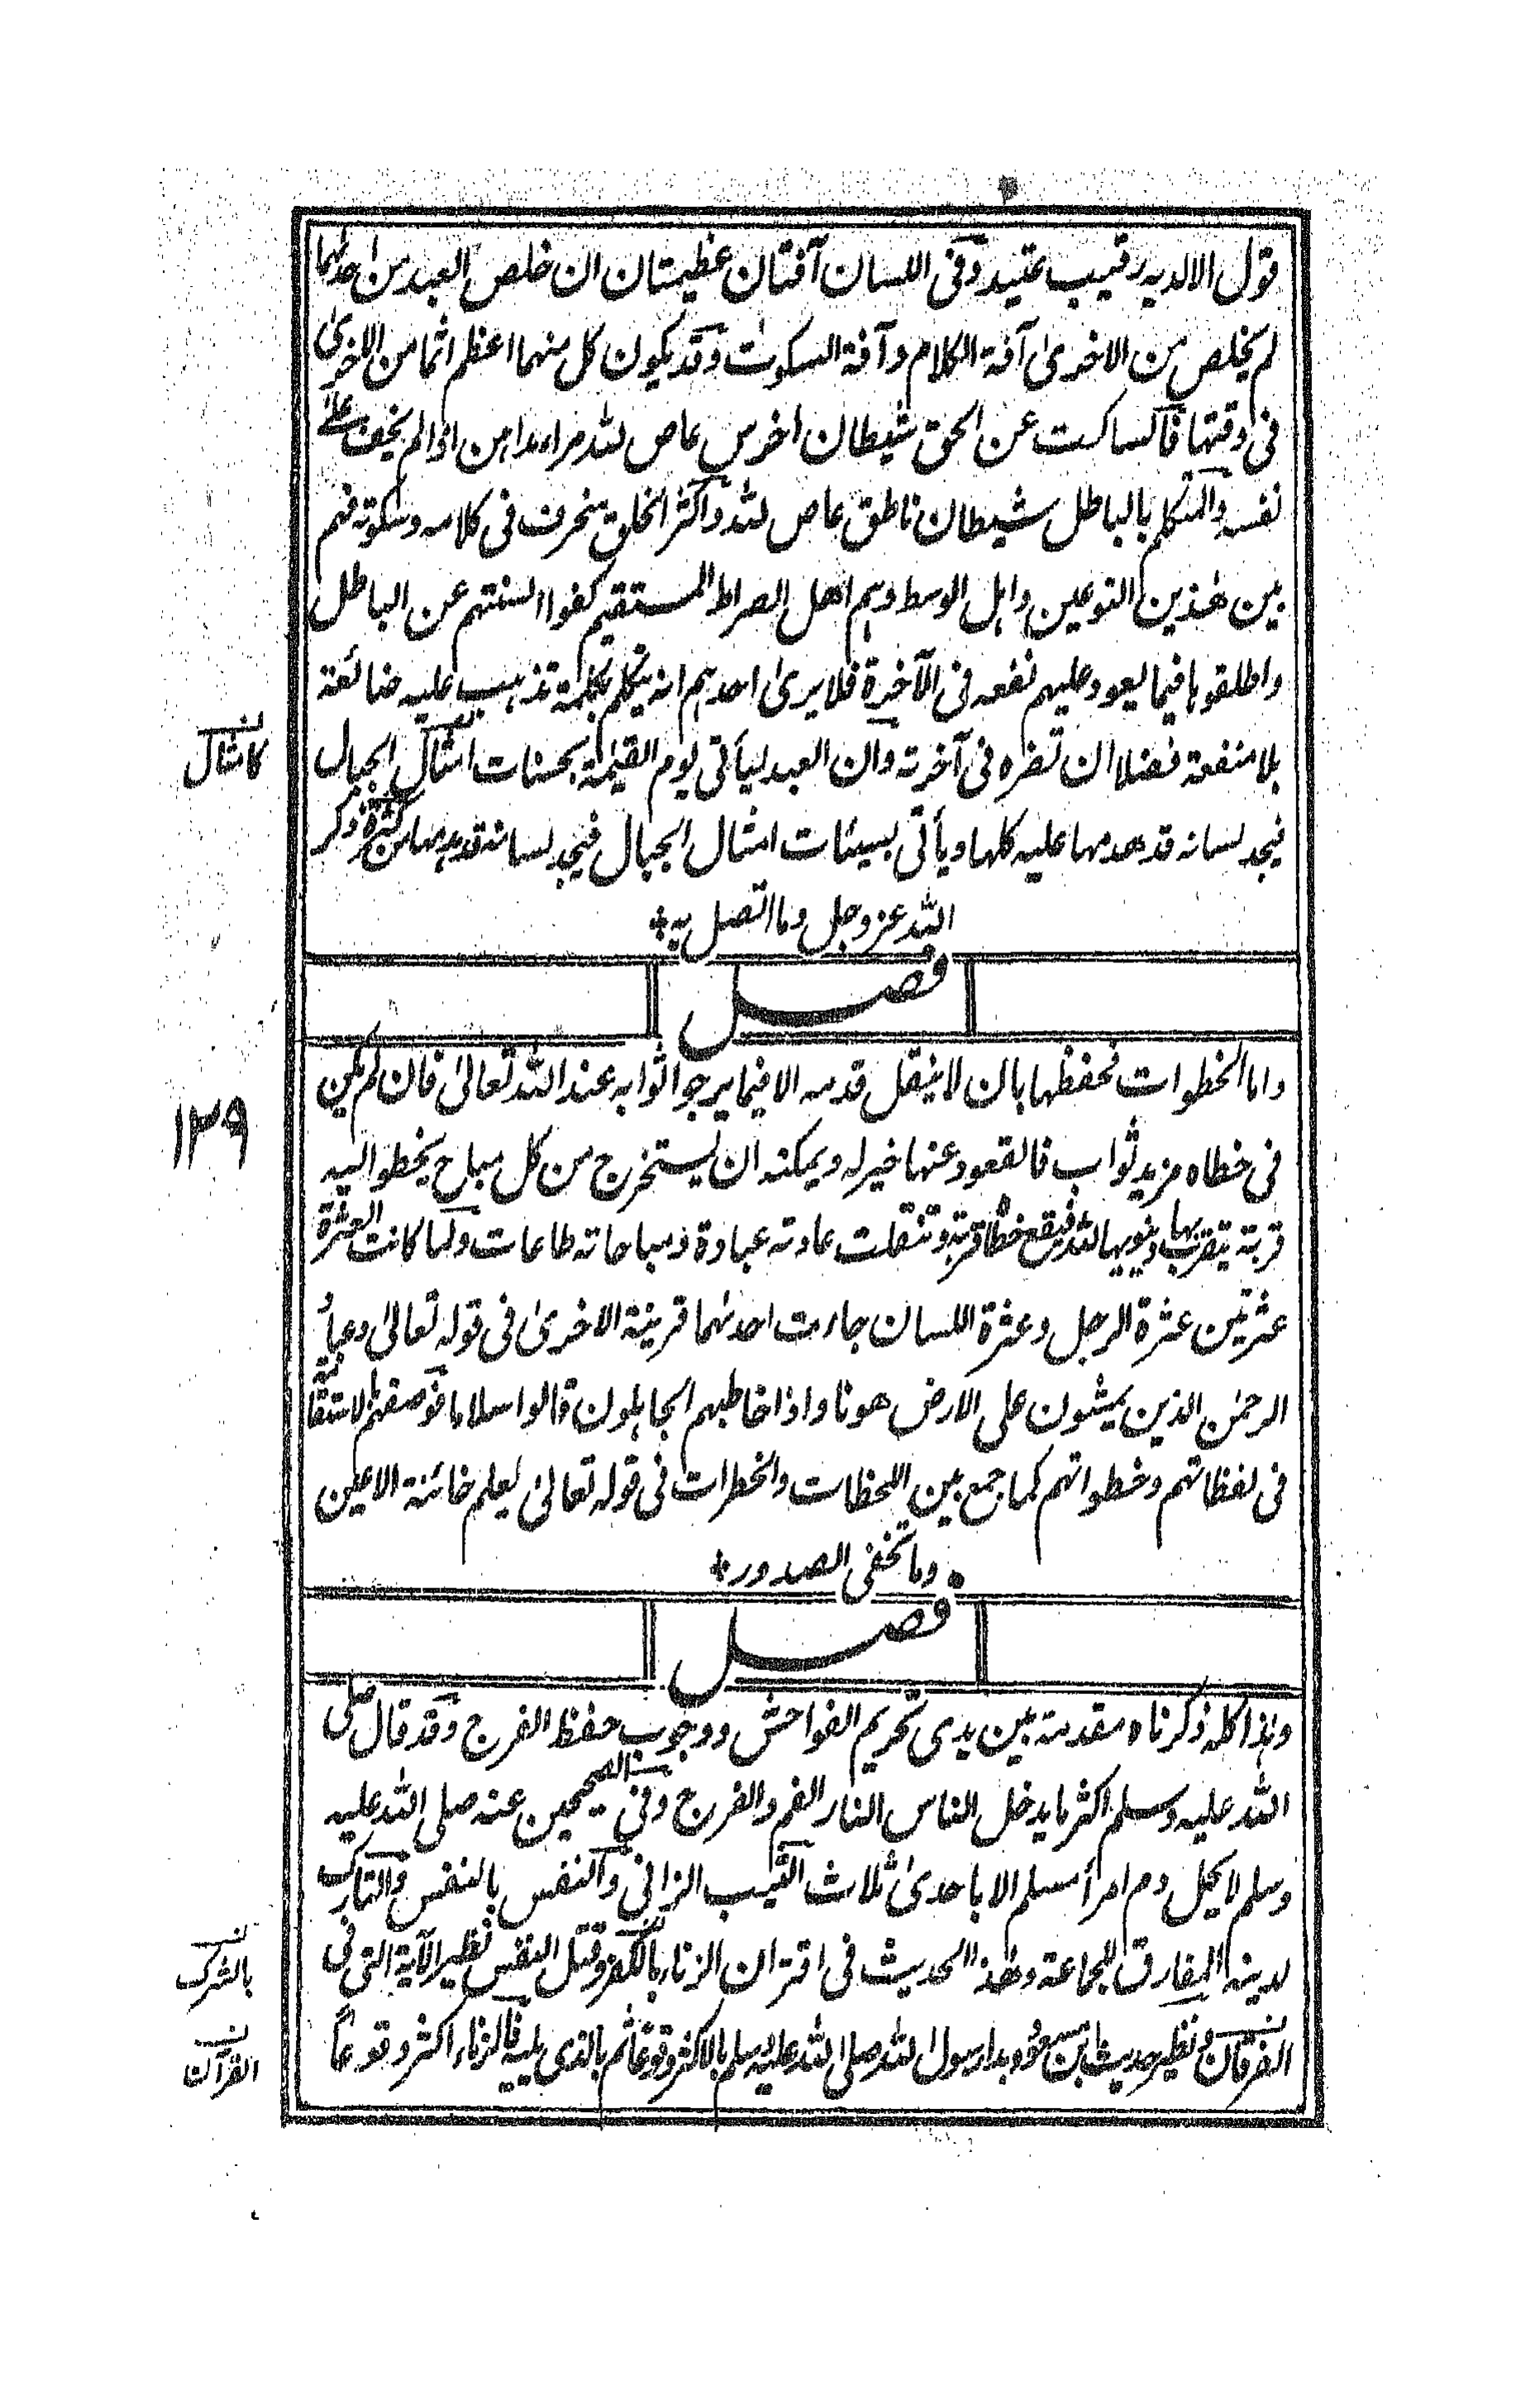 قول الا لديه رقيب عتيد وفى اللسان آفتان عظيمتان ان خلص العبد من احدٰىهما
لم يخلص من الاخرىٰ آفة الكلام وآفة السكوت وقد يكون كل منهما اعظم اثما من الاخرىٰ
فى وقتها فالساكت عن الحق شيطان اخرس عاص لله مراء مداهن اذا لم يخف علىٰ
نفسه والمتكلم بالباطل شيطان ناطق عاص لله واكثر الخلق منحرف فى كلامه وسكوته فهم
بين هٰذين النوعين واهل الوسط وهم اهل الصراط المستقيم كفوا السنتهم عن الباطل
واطلقوها فيما يعود عليهم نفعه فى الآخرة فلا يرىٰ احدهم انه يتكلم بكلمة تذهب عليه ضائعة
بلا منفعة فضلا ان تضره فى آخرته وان العبد ليأتى يوم القيٰمة بحسنات امثال الجبال
نسخہ
كامثال
فيجد لسانه قد هدمها عليه كلها ويأتى بسيئات امثال الجبال فيجد لسانه قد هدمها من كثرة ذكر
الله عز وجل وما اتصل به +
فصل
واما الخطوات فحفظها بان لا ينقل قدمه الا فيما يرجو اثوابه عند الله تعالىٰ فان لم يكن
١٣٩
فى خطاه مزيد ثواب فالقعود عنها خير له ويمكنه ان يستخرج من كل مباح يخطو اليه
قربة يتقرب بها وينويها لله فيقع خطاه قربة وتنقلب عادته عبادة ومباحاته طاعات ولما كانت العثرة
عثرتين عثرة الرجل وعثرة اللسان جاءت احدٰىهما قرينة الاخرىٰ فى قوله تعالىٰ وعباد
الرحمٰن الذين يمشون على الارض هونا واذا خاطبهم الجاهلون قالوا سلاما فوصفهم بالاستقامة
فى لفظاتهم وخطواتهم كما جمع بين اللحظات والخطرات فى قوله تعالىٰ يعلم خائنة الاعين
وما تخفى الصدور +
فصل
وهذا كله ذكرناه مقدمة بين يدى تحريم الفواحش ووجوب حفظ الفرج وقد قال صلى
الله عليه وسلم اكثر ما يدخل الناس النار الفم والفرج وفى الصحيحين عنه صلى الله عليه
وسلم لا يحل دم امرأ مسلم الا باحدىٰ ثلاث الثيب الزانى والنفس بالنفس والتارك
لدينه المفارق للجماعة وهٰذا الحديث فى اقتران الزناء بالكفر وقتل النفس نظير الآية التى فى
نسخہ
بالشرك
الفرقان ونظير حديث ابن مسعود بدأ رسول الله صلى الله عليه وسلم بالاكثر وقوعا ثم بالذى يليه فالزناء اكثر وقوعاً
نسخہ
القرآن